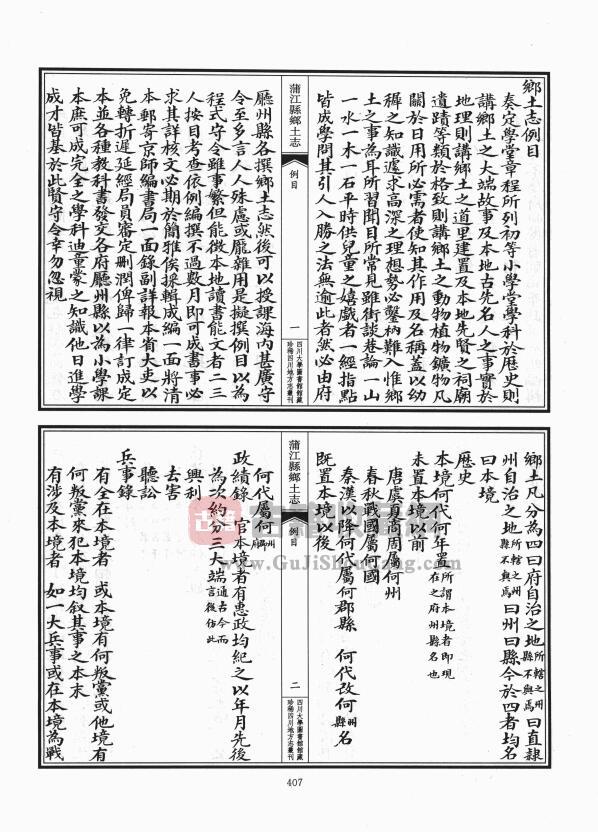 鄉土志例目
奏定學堂章程所列初等小學堂學科於歷史則
講鄉土之大端故事及本地古先名人之事實於
地理則講鄉土之道里建置及本地先賢之祠廟
遺蹟等類於格致則講鄉土之動物植物鑛物凡
關於日用所必需者使知其作用及名稱蓋以幼
穉之知識遽求高深之理想勢必鑿枘難入惟鄉
土之事為耳所習聞目所常見雖街談巷論一山
一水一木一石平時供兒童之嬉戲者一經指點
皆成學問其引人入勝之法無逾此者然必由府
蒲江縣鄉土志
例目
一
四川大學圖書館館藏
珍稀四川地方志叢刊
廳州縣各撰鄉土志然後可以授課海內甚廣守
令至多言人人殊慮或龐雜用是擬撰例目以為
程式守令雖事繁但能徵本地讀書能文者二三
人按目考查依例編撰不過數月即可成書事必
求其詳核文必期於簡雅俟採輯成編一面將清
本郵寄京師編書局一面錄副詳報本省大吏以
免轉折遲延經局員審定刪潤俾歸一律訂成定
本並各種教科書發交各府廳州縣以為小學課
本庶可成完全之學科迪童蒙之知識他日進學
成才皆基於此賢守令幸勿忽視
鄉土凡分為四曰府自治之地所轄之州縣不與焉曰直隸
州自治之地所轄之縣不與焉曰州曰縣今於四者均名
曰本境
歷史
本境何代何年置所謂本境者即現在之府州縣名也
未置本境以前
唐虞夏商周屬何州
春秋戰國屬何國
秦漢降何代屬何郡縣 何代改何州縣名
既置本境以後
蒲江縣鄉土志
例目
二
四川大學圖書館館藏
珍稀四川地方志叢刊
何代屬何州郡府
政績錄 官本境者有惠政均紀之以年月先後
為次約分三大端通古今而言後仿此
興利
去害
聽訟
兵事錄
有全在本境者 或本境有何叛黨或他境有
何叛黨來犯本境均叙其事之本末
有涉及本境者 如一大兵事或在本境為戰
407
古籍
www.GuJiShuFang.com